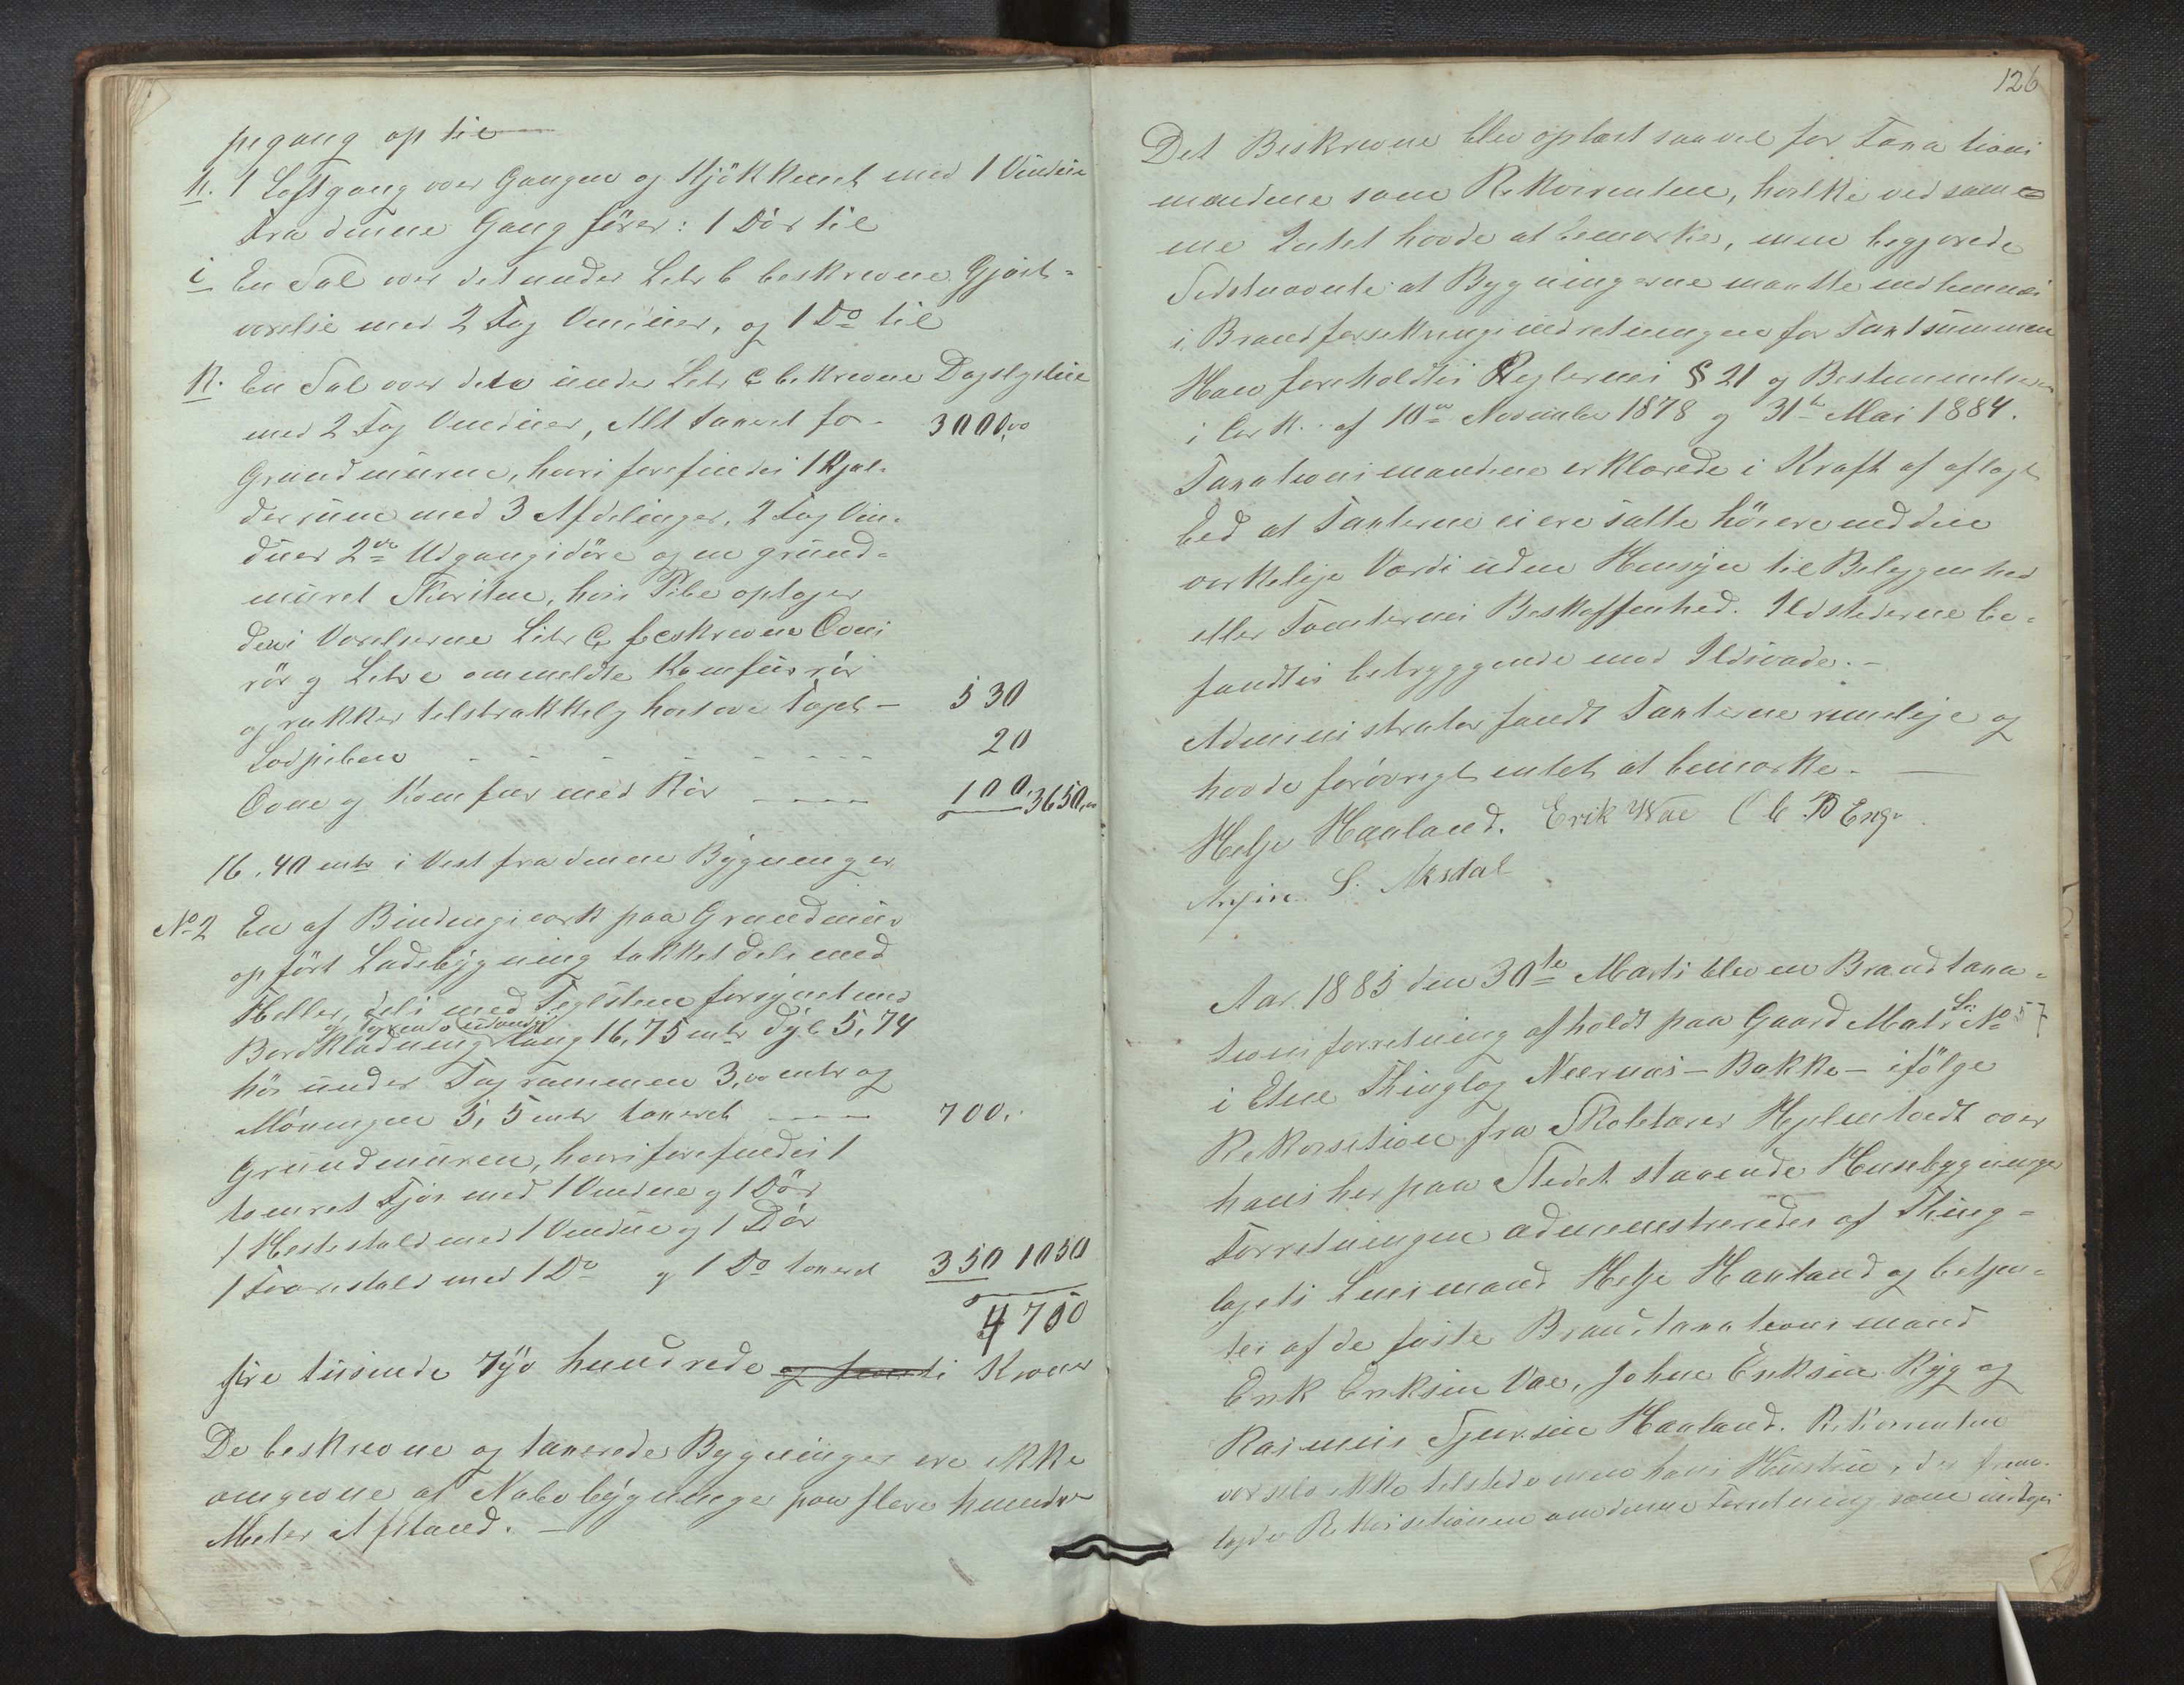 pegang op til
h. 1 Loftgang over Gangen og Kjökkenet med 1 Vindue
Fra denne Gang förer: 1 Dör til
i En Sal over det under Letr b beskrevne Gjæst-
værelse med 2 Fag Vinduer, og 1 Do til
k. En Sal over dete under Letr c bekrevne Dagligstue
med 2 Fag Vinduer, Alt taxeret for 3000,00
Grundmuren, hvori forefindes 1 Kjæl-
derrum med 3 Afdelinger, 2 Fag Vin-
duer 2de Udgangsdöre og en grund-
muret Skorsten, hvis Pibe optager
de i Værelserne Litr c, f beskrevne Ovns
rör og Letr e ommeldte Komfurrör
og rækker telstrækkelig hoit over Taget - 530
Lodpiben 20
Ovne og Komfur med Rör 100, 3650,00
16,40 mtr i Vest fra denne Bygning er
No 2 En af Bindingsværk paa Grundmur
opfört Ladebygning tækket dels med
Heller, dels med Teglstene forsynet med
Bordklædning og Tagrender udvendig lang 16,75 mtr dyb 5,74
höi under Tagrammen 3,00 mtr og
Mönengen 5,5 mtr taxeret 700,
Grundmuren, hvori forefindes 1
tömret Fjös med 1 Vindue og 1 Dör
1 Hestestald med 1 Vindue og 1 Dör
1 Faarestald med 1 Do og 1 Do taxeret 350 1050
4700
fire tusinde syv hundrede og femti Kroner
De beskrevne og taxerede Bygninger ere ikke
omgivne af Nabobygninger paa flere hundre
Meter Afstand. -
126
Det Beskrevne blev oplæst saavel for Taxations
mændene som Rekvirenten, hvilke ved sam-
me Intet havde at bemærke, men begjærede
Sidstnævnte at Bygningerne maatte indtemmes
i Brandforsikringsindretningen for Taxtsummen
Han foreholdtes Reglernes § 21 og Bestemmelserne
i Cerk. af 10de November 1878 og 31te Mai 1884.
Taxationsmændene erklærede i Kraft af aflagt
Eed at Taxterne ei ere satte höiere end den
verkelige Værdi uden Hensyn til Beliggenhed
eller Tomternes Beskaffenhed. Ildstederne be-
fandtes betryggende mod Ildsvade. -
Administrator fandt Taxterne rimelige og
havde forövrigt intet at bemærke. -
Helje Haaland. Erik Wae
S. Aksdal
Aar 1885 den 30te Marts blev en Brandtaxa-
tionsforretning afholdt paa Gaard Matr. Lö: No 57
i Etne Thinglag Neernæs - Bakke - ifölge
Rekvisition fra Skolelærer Hjelmtvedt over
hans her paa Stedet staaende Husebygninger
Forretningen administreredes af Thing-
lagets Lensmand Helje Haaland og betjen-
tes af de faste Brandtaxationsmænd
Erik Eriksen Vae, Johne Eriksen Ryg og
Rasmus Tjersen Haaland. Rekvirenten
var selv ikke tilstede men hans Hustru, der frem-
lagde Rekvisitionen om denne Forretning som indtages